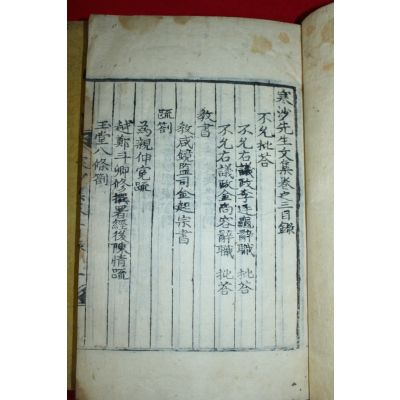 寒沙先生文集卷之三目錄
不允批答
不允右議政李廷龜辭職 批答
不允右議政金尚容辭職 批答
教書
教咸鏡監司金起宗書
疏箚
為親伸寃疏
越鄭斗卿修撰署經後陳情疏
玉堂八條箚